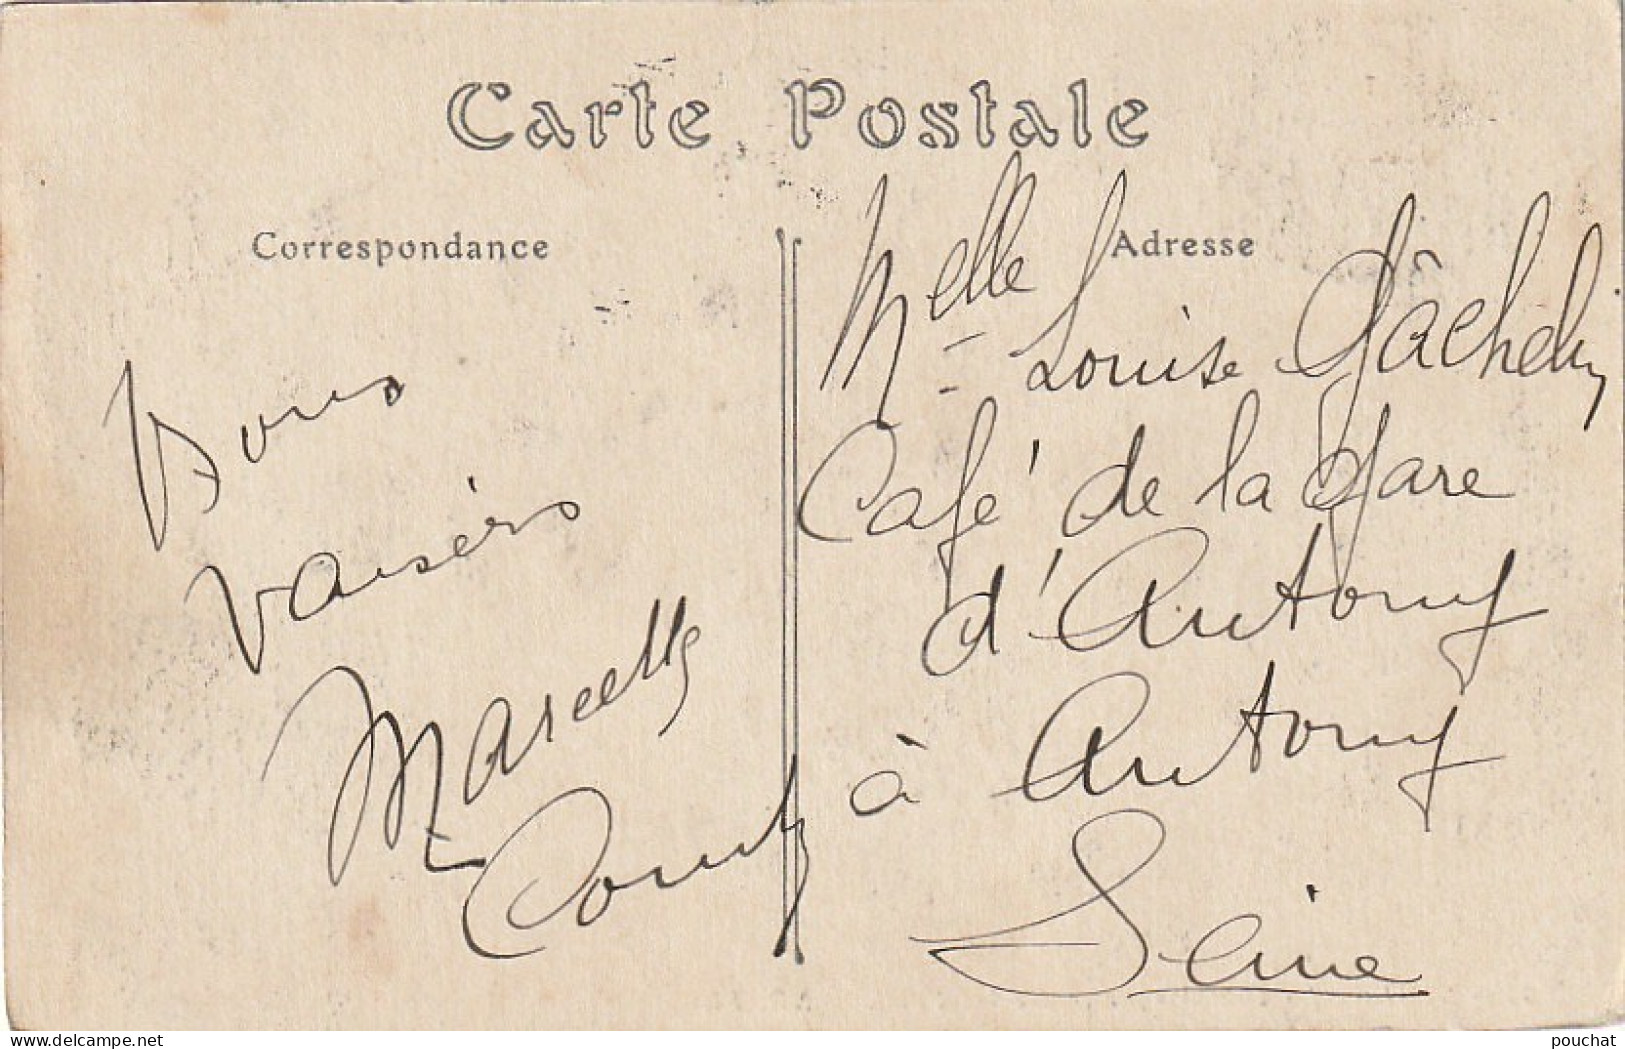 Carte Postale
Correspondance
Bons
baisers
Marcelle
Adresse
Melle Louise Gâchelin
Café de la Gare
d'Antony
à Antony
Seine
www.delcampe.net
pouchat